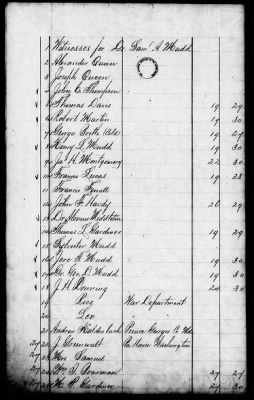 1 Witnesses for Dr Saml A Mudd
2 Alexander Quinn
3 Joseph Queen
4 John C Thompson
5 Thomas Davis 19 29
6 Robert Martin 19 30
7 George Booth (Cold) 19 27
8 Henry L Mudd 19 30
9 Jas H Montgomery 22 30
10 Francis Lucas 19 28
11 Francis
12 John F. Hardy 26 29
13 Dr
14 Thomas L Gardiner 19 29
15 Sylvester Mudd
16 Jere H Mudd 19 30
17 Dr Geo. D. Mudd 19 30
18 J. H. Downing 20 30
19 Rice War Department
20 Leo
21 Andrew Prince Georges Co Md
27 22 J. Washington
27 23 Wm
27 24 27
27 25 27 30